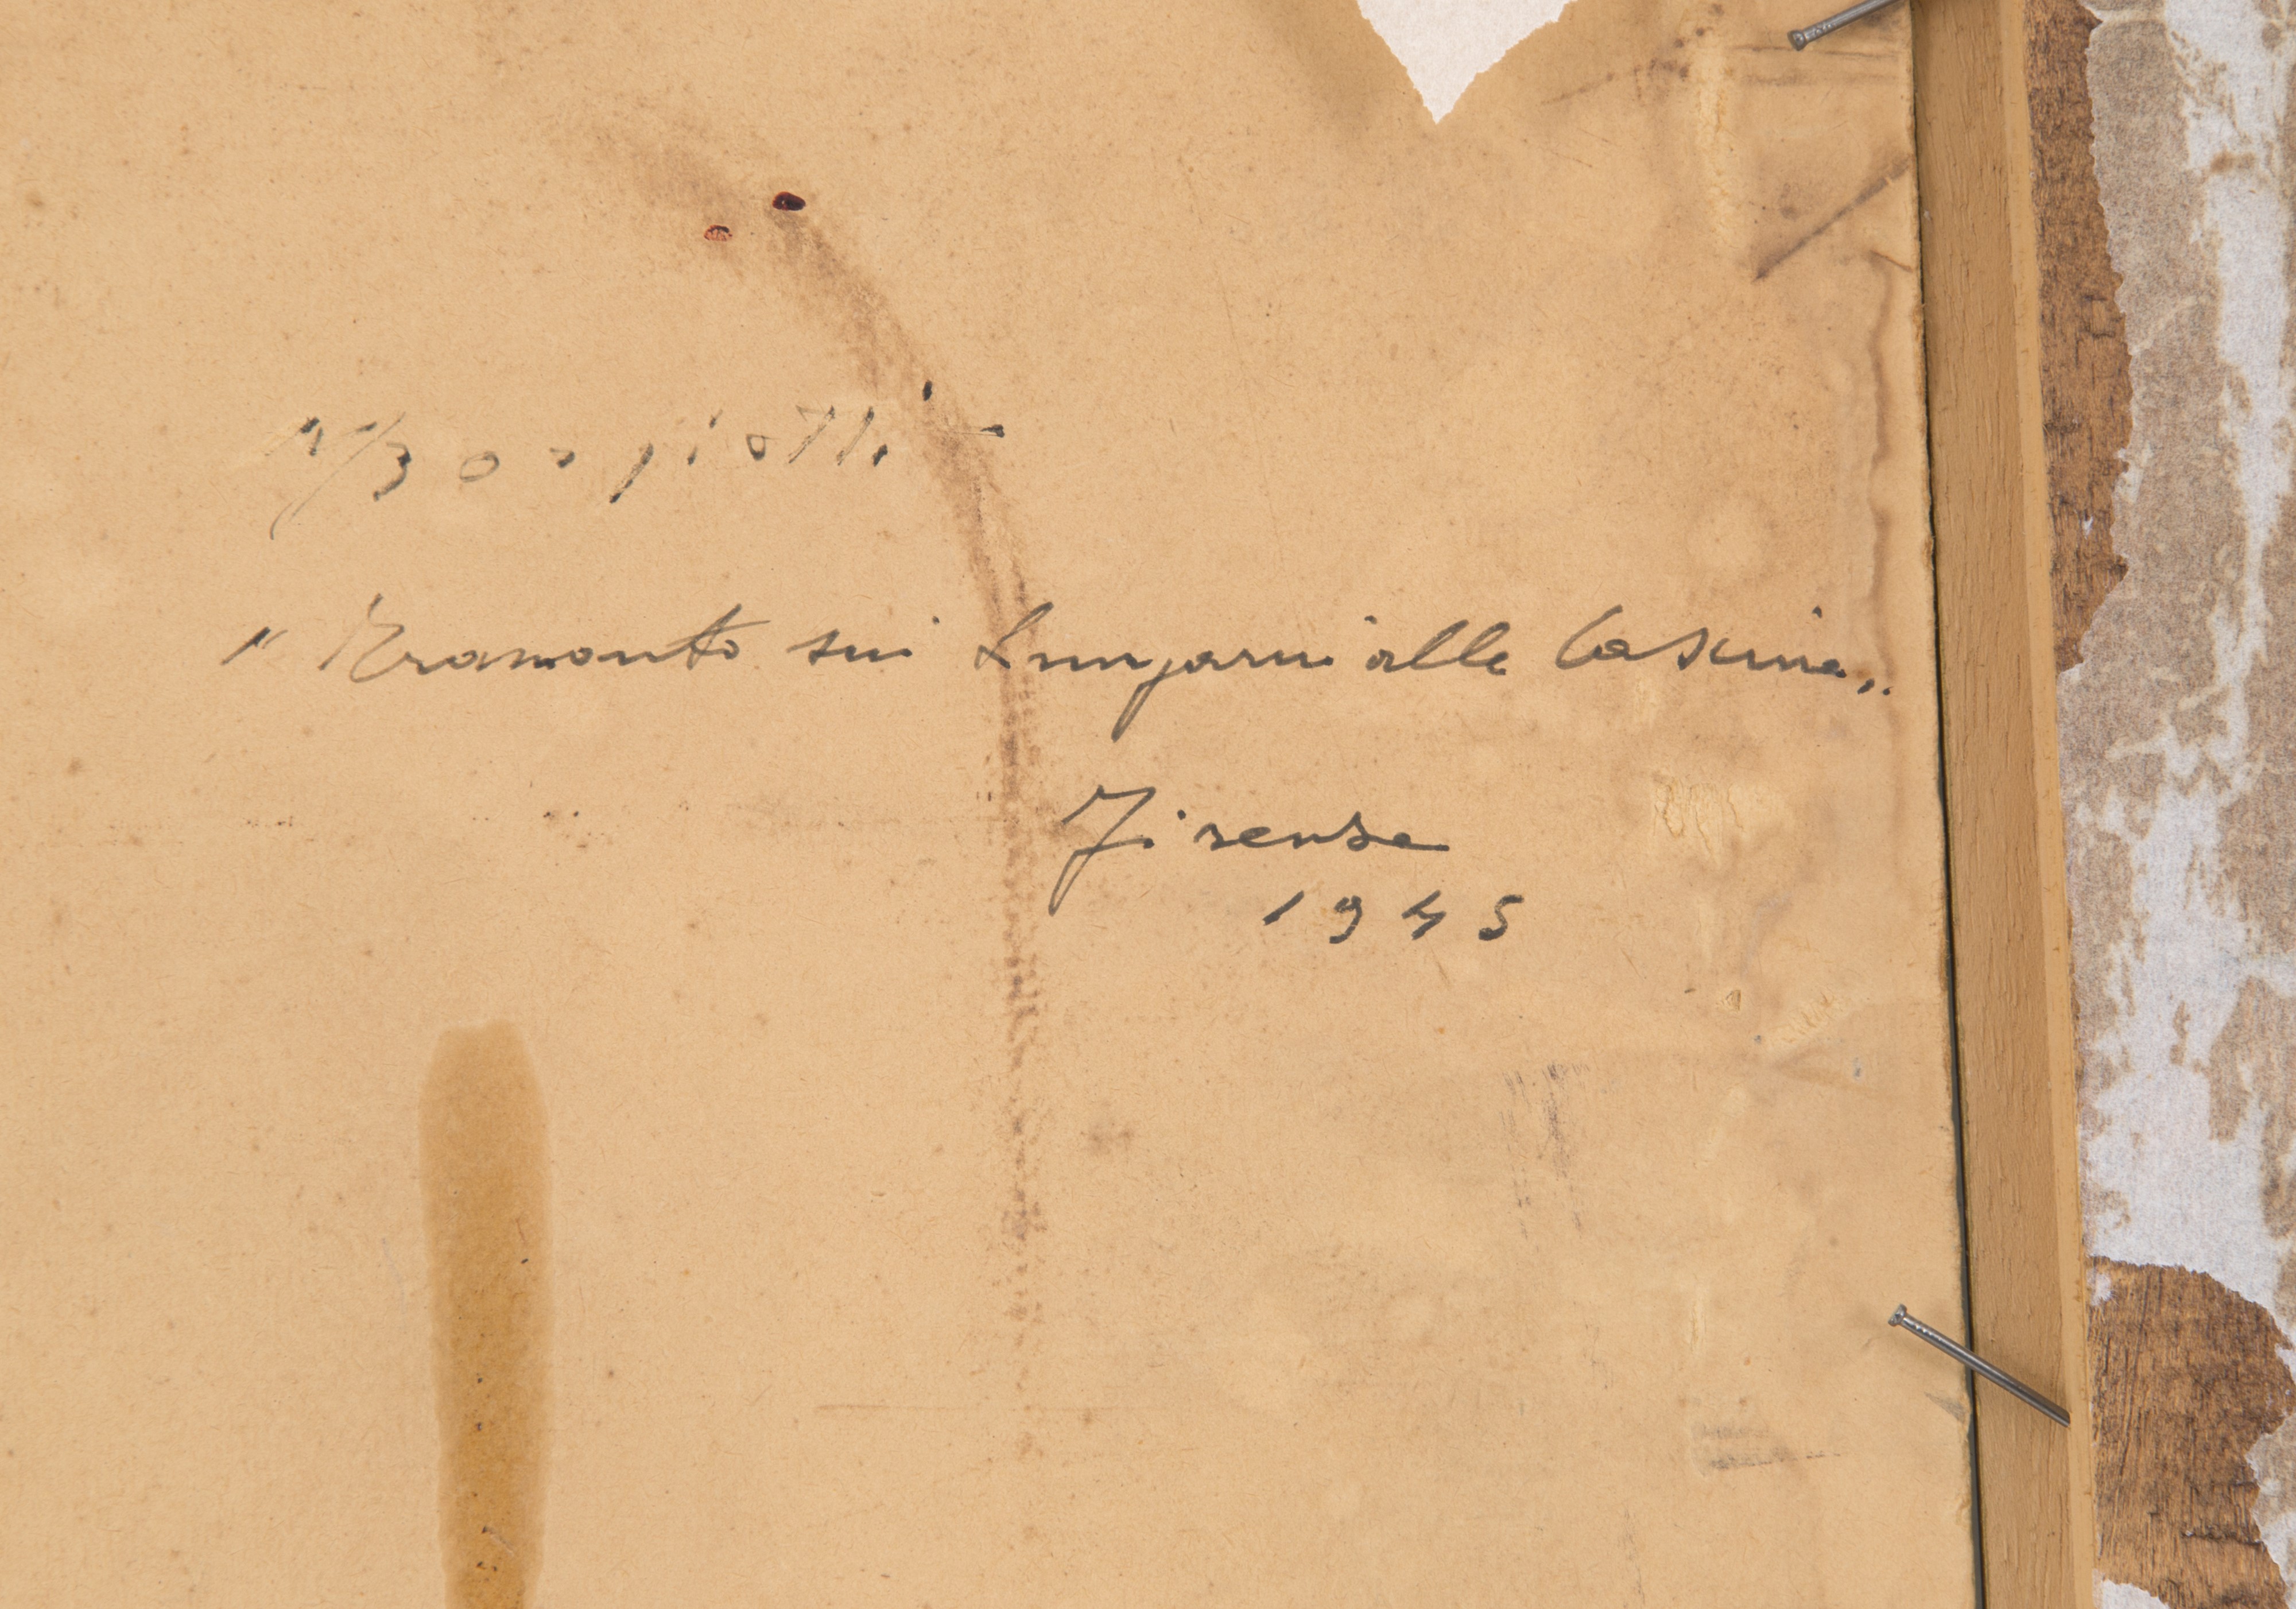 "Tramonto sui Lungarni alle Cascine„
Firenze
1945